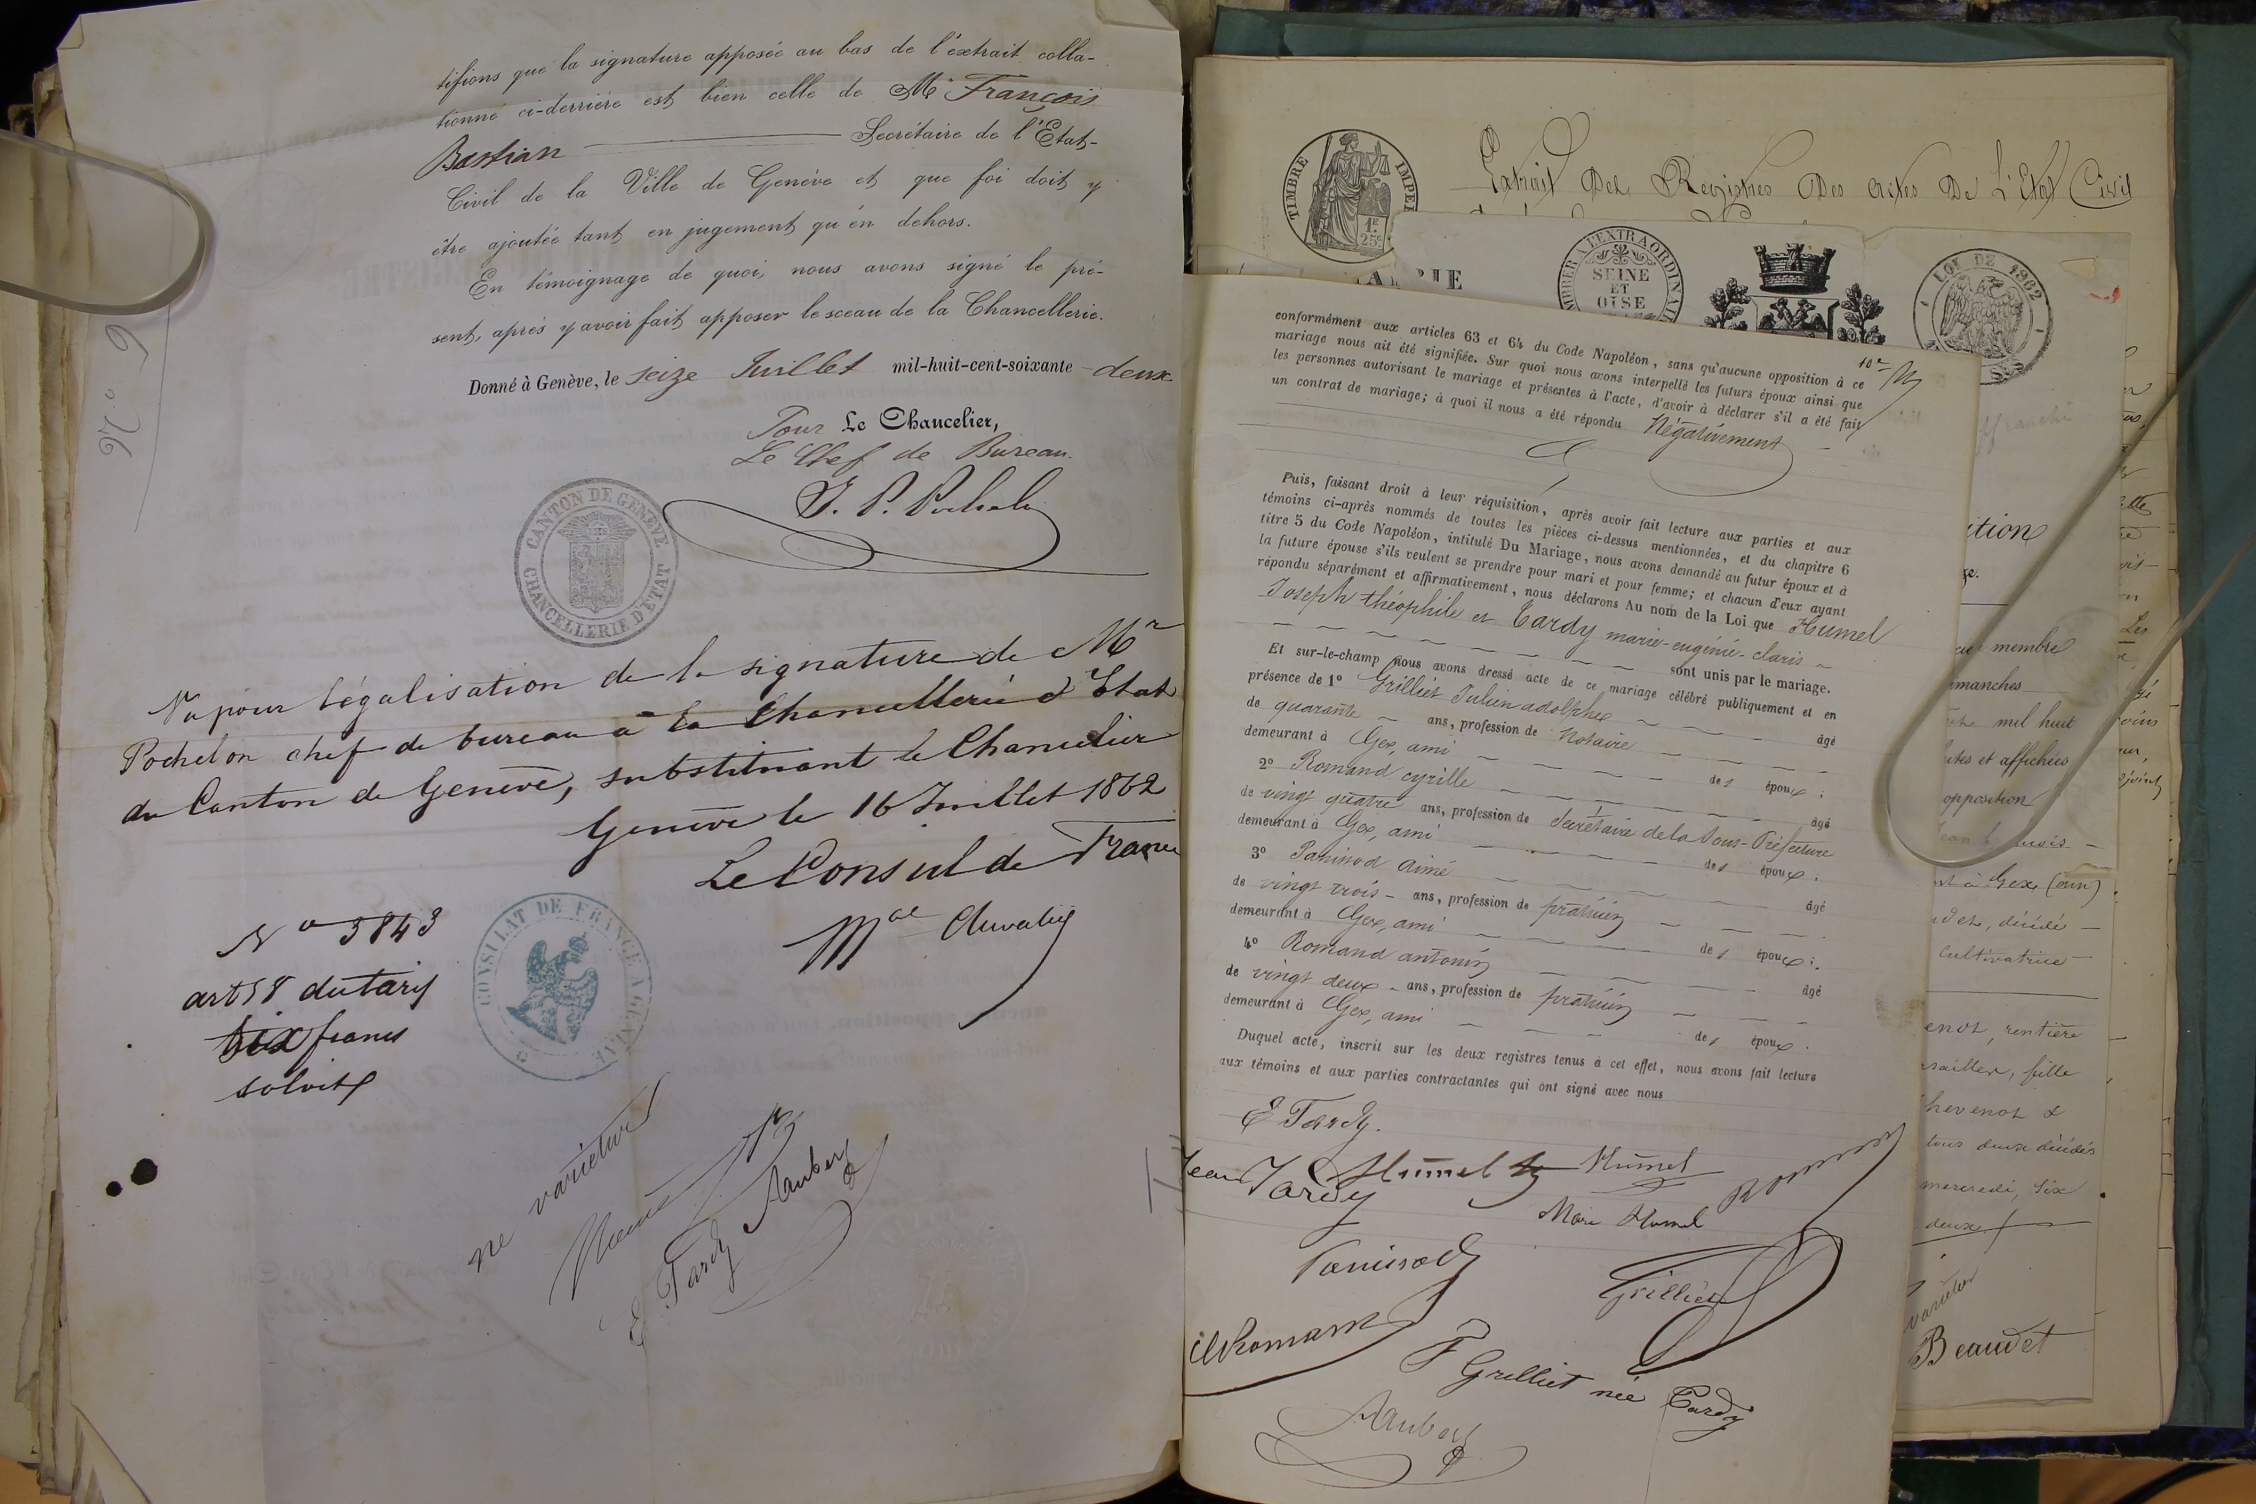 tifions que la signature apposée au bas de l'extrait colla-
tionné ci-derrière est bien celle de Mr François
Bastian Secrétaire de l'Etat-
Civil de la Ville de Genève et que foi doit y
être ajoutée tant en jugement qu'en dehors.
En témoignage de quoi, nous avons signé le pré-
sent, après y avoir fait apposer le sceau de la Chancellerie.
Donné à Genève, le seize Juillet mil-huit-cent-soixante-deux
Pour Le Chancelier,
Le Chef de Bureau.
N° 9
CANTON DE GENÈVE
CHANCELLERIE D'ETAT
Vu pour légalisation de la signature de Mr
Pochelon chef de bureau à la Chancellerie d'Etat
du Canton de Genève, substituant le Chancelier
Genève le 16 Juillet 1862
Le Consul de France
N° 3843
art 58 du tarif
six francs
solvit
CONSULAT DE FRANCE A GENÈVE
ne varietur
E Tardy
Aubery
TIMBRE IMPER
1F 25C
Extrait Des Registres Des actes De L'Etat Civil
TIMBRE A L'EXTRAORDINAIRE
SEINE
ET
OISE
LOI DE 1862
conformément aux articles 63 et 64 du Code Napoléon, sans qu'aucune opposition à ce
mariage nous ait été signifiée. Sur quoi nous avons interpellé les futurs époux ainsi que
les personnes autorisant le mariage et présentes à l'acte, d'avoir à déclarer s'il a été fait
un contrat de mariage; à quoi il nous a été répondu Négativement
Puis, faisant droit à leur réquisition, après avoir fait lecture aux parties et aux
témoins ci-après nommés de toutes les pièces ci-dessus mentionnées, et du chapitre 6
titre 5 du Code Napoléon, intitulé Du Mariage, nous avons demandé au futur époux et à
la future épouse s'ils veulent se prendre pour mari et pour femme; et chacun d'eux ayant
répondu séparément et affirmativement, nous déclarons Au nom de la Loi que Humel
Joseph théophile et Tardy marie-eugénie-claris
sont unis par le mariage.
Et sur-le-champ nous avons dressé acte de ce mariage célébré publiquement et en
présence de 1° Grilliet Julien adolphe âgé
de quarante ans, profession de notaire
demeurant à Gex, ami des époux;
2° Romand cyrille âgé
de vingt quatre ans, profession de Secrétaire de la Sous-Préfecture
demeurant à Gex, ami des époux;
3° Panissod aimé âgé
de vingt trois ans, profession de praticien
demeurant à Gex, ami des époux;
4° Romand antonin âgé
de vingt deux ans, profession de praticien
demeurant à Gex, ami des époux.
Duquel acte, inscrit sur les deux registres tenus à cet effet, nous avons fait lecture
aux témoins et aux parties contractantes qui ont signé avec nous
E Tardy.
Jean Tardy
Humel
Humel
Marie Humel
Romand
Panissod
Grilliet
Romand
F Grilliet née Tardy
Aubery
ition
membre
manches
mil huit
et affichées
opposition
à Gex (ain)
décédé
cultivatrice
enot, rentière
fille
hevenot &
tous deux décédés
mercredi, six
deux
varietur
Beaudet